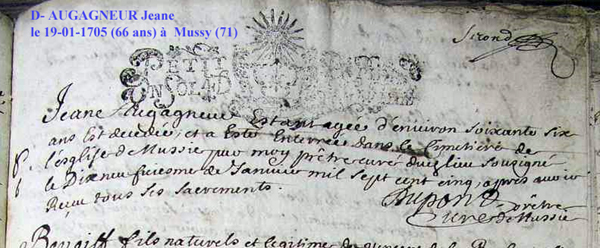 D- AUGAGNEUR Jeane
le 19-01-1705 (66 ans) à Mussy (71)
Sirond
PETIT
UN SOL
Jeane Augagneur Estant agee d'environ soixante six
ans Est decedée, et a Esté Enterrée dans le Cimetiére de
l'esglise de Mussie par moy prêtre curé dudit lieu sousigné
le Dixneufiesme de Janvier mil sept cent cinq, apres avoir
Reçeu tous ses sacrements.
Dupond prêtre
Curé de Mussie
Benoist fils naturels et legitime de